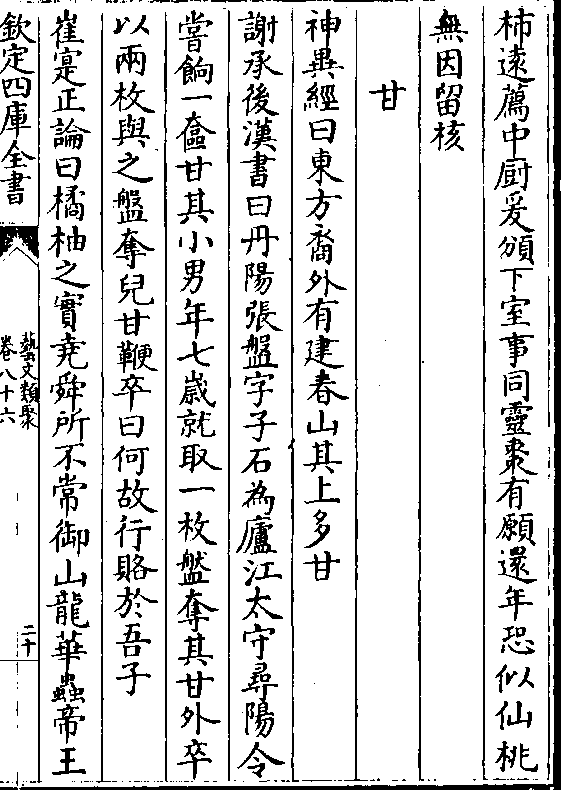 柿遠薦中厨爰頒下室事同靈棗有願還年恐似仙桃
無因留核
甘
神異經曰東方裔外有建春山其上多甘
謝承後漢書曰丹陽張盤字子石為廬江太守尋陽令
嘗餉一奩甘其小男年七歳就取一枚盤奪其甘外卒
以兩枚與之盤奪兒甘鞭卒曰何故行賂於吾子
崔寔正論曰橘柚之實堯舜所不常御山龍華蟲帝王
欽定四庫全書
藝文類聚
卷八十六
二十